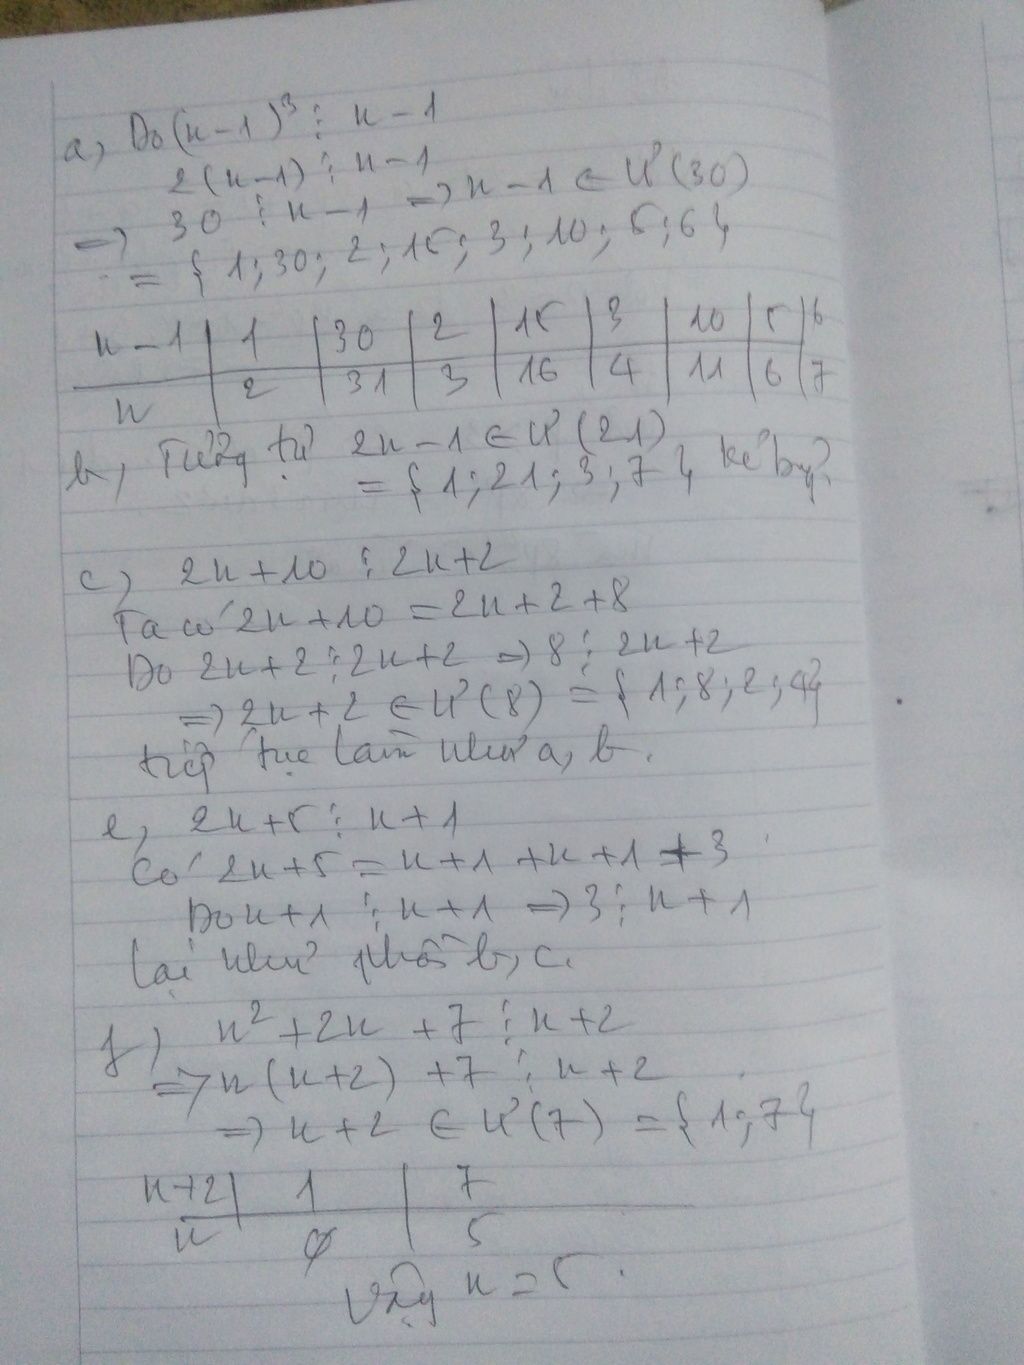 a, Do (n-1)³ ⋮ n-1
2(n-1) ⋮ n-1
=> 30 ⋮ n-1 => n-1 ∈ Ư(30)
= {1;30;2;15;3;10;5;6}
n-1 | 1 | 30 | 2 | 15 | 3 | 10 | 5 | 6
n | 2 | 31 | 3 | 16 | 4 | 11 | 6 | 7
b, Tương tự 2n-1 ∈ Ư(21)
= {1;21;3;7} kẻ bg?
c, 2n+10 ⋮ 2n+2
Ta có 2n+10 = 2n+2+8
Do 2n+2 ⋮ 2n+2 => 8 ⋮ 2n+2
=> 2n+2 ∈ Ư(8) = {1;8;2;4}
tiếp tục làm như a, b.
e, 2n+5 ⋮ n+1
Có 2n+5 = n+1+n+1+3
Do n+1 ⋮ n+1 => 3 ⋮ n+1
Lại như phần b, c.
f) n²+2n+7 ⋮ n+2
=> n(n+2)+7 ⋮ n+2
=> n+2 ∈ Ư(7) = {1;7}
n+2 | 1 | 7
n | φ | 5
Vậy n = 5.